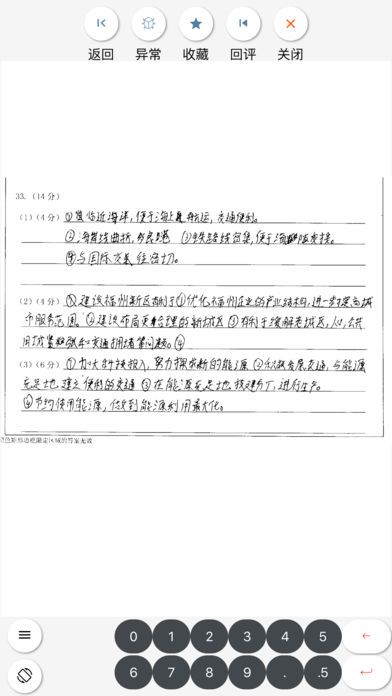 返回 异常 收藏 回评 关闭
33. (14 分)
(1)(4 分) ①临近海洋,便于海上航运,交通便利。
②海岸线曲折,多良港 ③铁路线密集,便于海陆联接。
④与国际交易往密切。
(2)(4 分) ①建设福州新区有利于①优化福州企业的产业结构,进一步提高城
市服务范围 ②建设布局更合理的新城区 ③有利于缓解老城区人口,公共
用地紧和交通拥堵等问题。④
(3)(6 分) ①加大科技投入,努力探索新的能源 ②积极发展交通,与能源
充足地建立便利的交通 ③在能源充足地投建工厂,进行生产。
④节约使用能源,做到能源利用最大化。
色矩形边框限定区域的答案无效
0 1 2 3 4 5
6 7 8 9 . .5